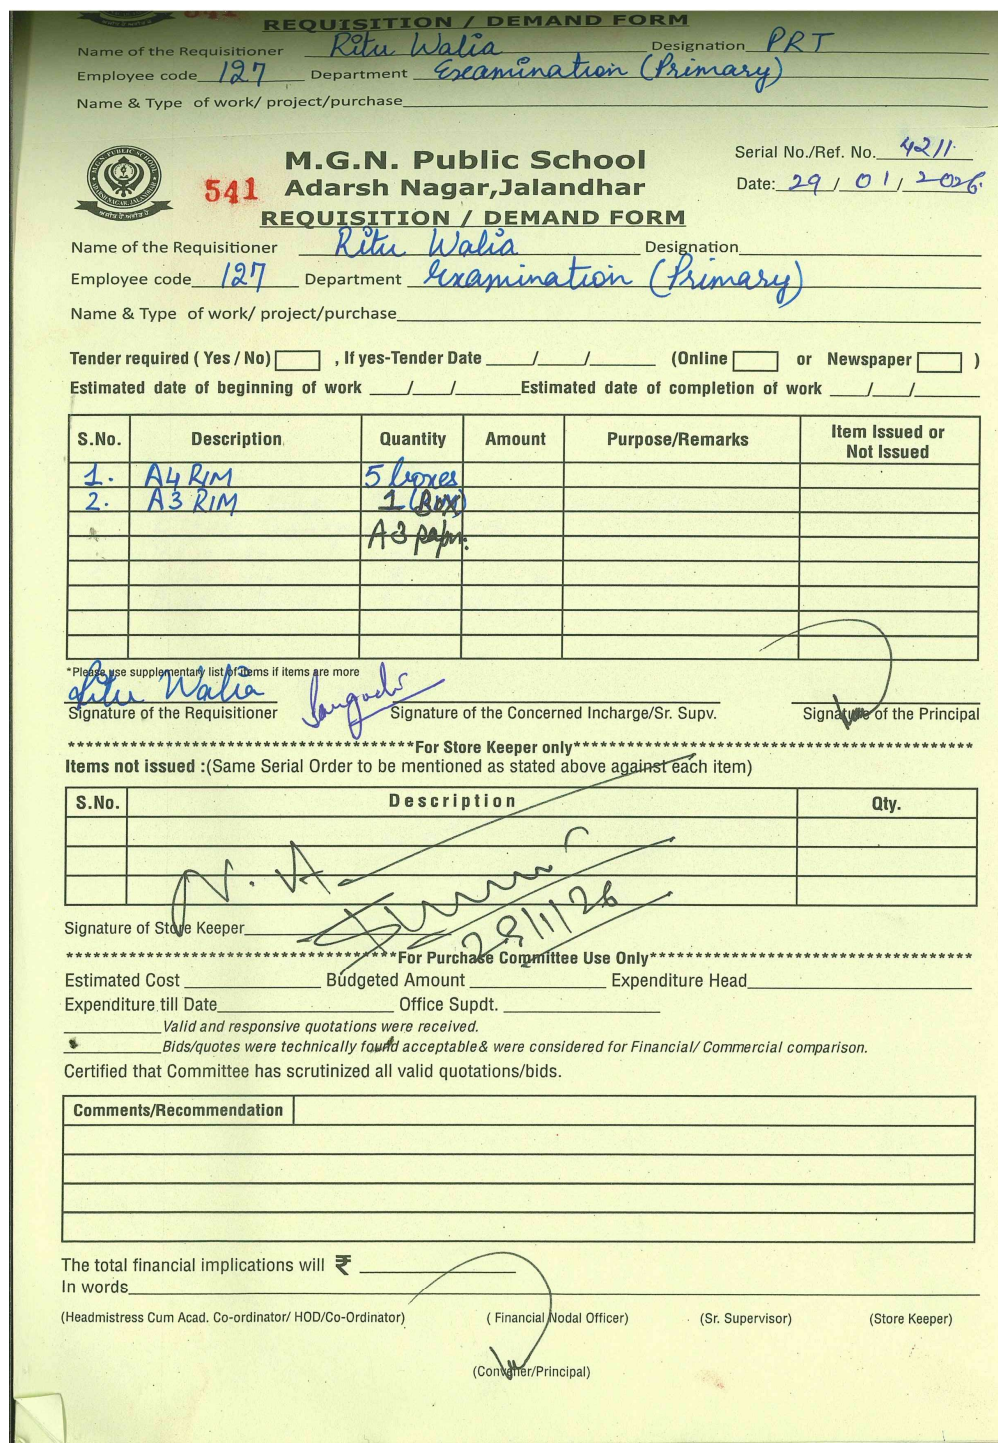 541
REQUISITION / DEMAND FORM
Name of the Requisitioner Ritu Walia Designation PRT
Employee code 127 Department Examination (Primary)
Name & Type of work/ project/purchase
M.G.N. Public School
Serial No./Ref. No. 4211
541 Adarsh Nagar,Jalandhar
Date: 29 / 01 / 2026
REQUISITION / DEMAND FORM
Name of the Requisitioner Ritu Walia Designation
Employee code 127 Department Examination (Primary)
Name & Type of work/ project/purchase
Tender required ( Yes / No) , If yes-Tender Date ___/___/___ (Online or Newspaper )
Estimated date of beginning of work ___/___/___ Estimated date of completion of work ___/___/___
S.No. Description Quantity Amount Purpose/Remarks Item Issued or Not Issued
1. A4 RIM 5 boxes
2. A3 RIM 1 (Box)
A3 papr.
*Please use supplementary list of items if items are more
Ritu Walia
Signature of the Requisitioner Signature of the Concerned Incharge/Sr. Supv. Signature of the Principal
**************************************For Store Keeper only**************************************
Items not issued :(Same Serial Order to be mentioned as stated above against each item)
S.No. Description Qty.
N.A
Signature of Store Keeper
**************************************For Purchase Committee Use Only**************************************
Estimated Cost Budgeted Amount Expenditure Head
Expenditure till Date Office Supdt.
Valid and responsive quotations were received.
Bids/quotes were technically found acceptable& were considered for Financial/ Commercial comparison.
Certified that Committee has scrutinized all valid quotations/bids.
Comments/Recommendation
The total financial implications will ₹
In words
(Headmistress Cum Acad. Co-ordinator/ HOD/Co-Ordinator) ( Financial Nodal Officer) (Sr. Supervisor) (Store Keeper)
(Convener/Principal)